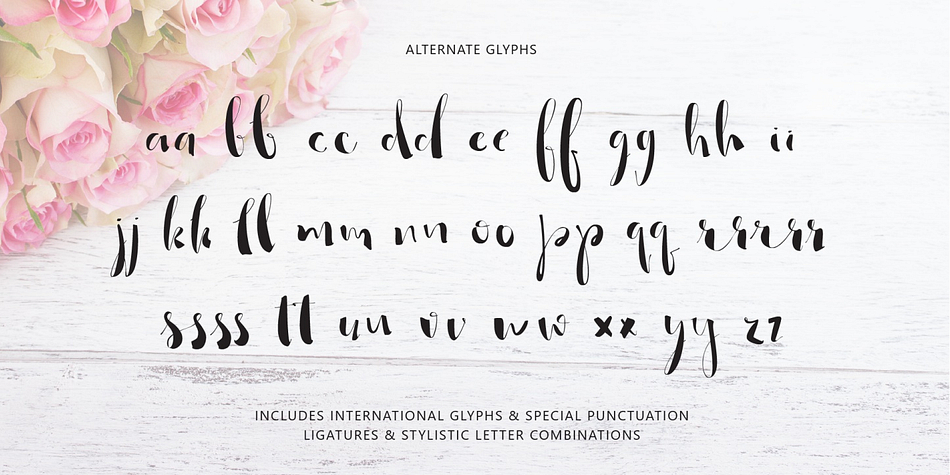 ALTERNATE GLYPHS
aa bb cc dd ee ff gg hh ii
jj kk ll mm nn oo pp qq rrrrr
ssss tt uu vv ww xx yy zz
INCLUDES INTERNATIONAL GLYPHS & SPECIAL PUNCTUATION
LIGATURES & STYLISTIC LETTER COMBINATIONS